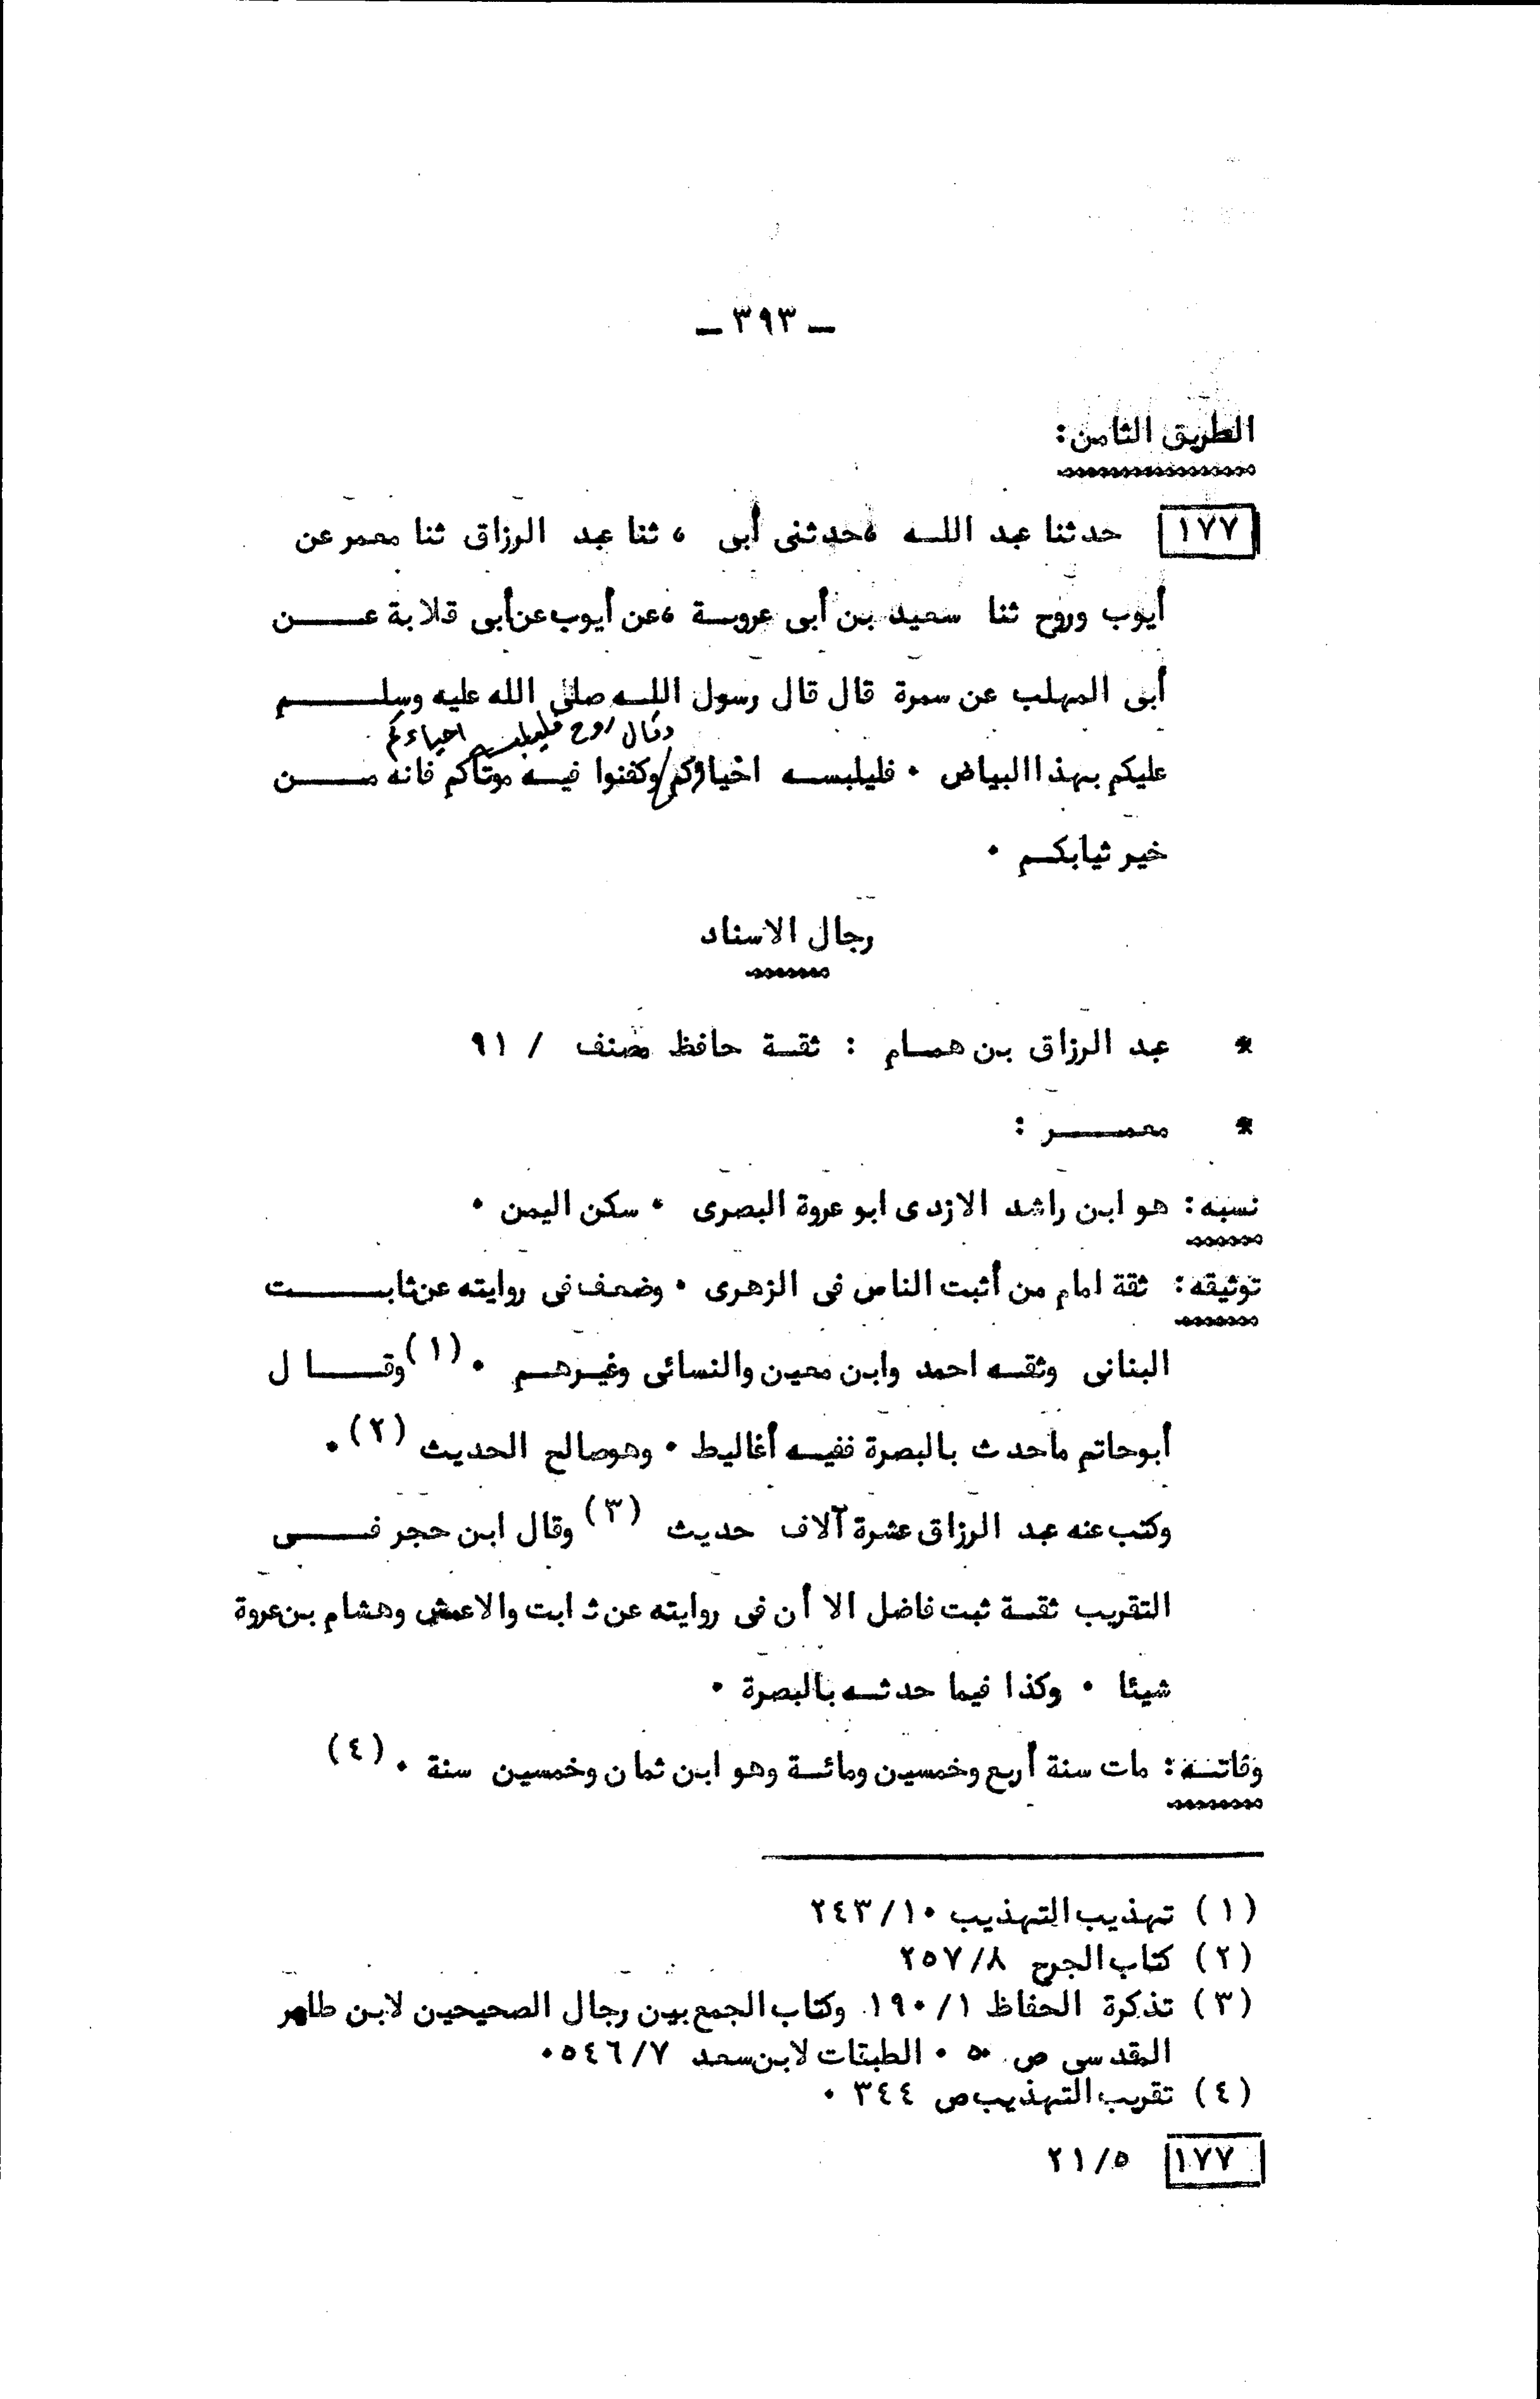 ـ ٣٩٣ ـ
الطريق الثامن :
١٧٧ حدثنا عبد الله ، حدثنى أبى ، ثنا عبد الرزاق ثنا معمر عن
أيوب وروح ثنا سعيد بن أبى عروبة ، عن أيوب عن أبى قلابة عن
أبى المهلب عن سمرة قال قال رسول الله صلى الله عليه وسلم
وقال روح فليلبسه احياءكم
عليكم بهذا البياض ٠ فليلبسه اخياؤكم / وكفنوا فيه موتاكم فانه من
خير ثيابكم ٠
رجال الاسناد
* عبد الرزاق بن همام : ثقة حافظ مصنف / ٩١
* معمر :
نسبه : هو ابن راشد الازدى ابو عروة البصرى ٠ سكن اليمن ٠
توثيقه : ثقة امام من أثبت الناس فى الزهرى ٠ وضعف فى روايته عن ثابت
البنانى وثقه احمد وابن معين والنسائى وغيرهم ٠ (١) وقال
أبوحاتم ماحدث بالبصرة ففيه أغاليط ٠ وهوصالح الحديث (٢) ٠
وكتب عنه عبد الرزاق عشرة آلاف حديث (٣) وقال ابن حجر فى
التقريب ثقة ثبت فاضل الا أن فى روايته عن ثابت والاعمش وهشام بن عروة
شيئا ٠ وكذا فيما حدثه بالبصرة ٠
وفاته : مات سنة أربع وخمسين ومائة وهو ابن ثمان وخمسين سنة ٠ (٤)
(١) تهذيب التهذيب ٢٤٣/١٠
(٢) كتاب الجرح ٢٥٧/٨
(٣) تذكرة الحفاظ ١٩٠/١ وكتاب الجمع بين رجال الصحيحين لابن طاهر
المقدسى ص ٠ الطبقات لابن سعد ٥٤٦/٧ ٠
(٤) تقريب التهذيب ص ٣٤٤ ٠
١٧٧ ٢١/٥